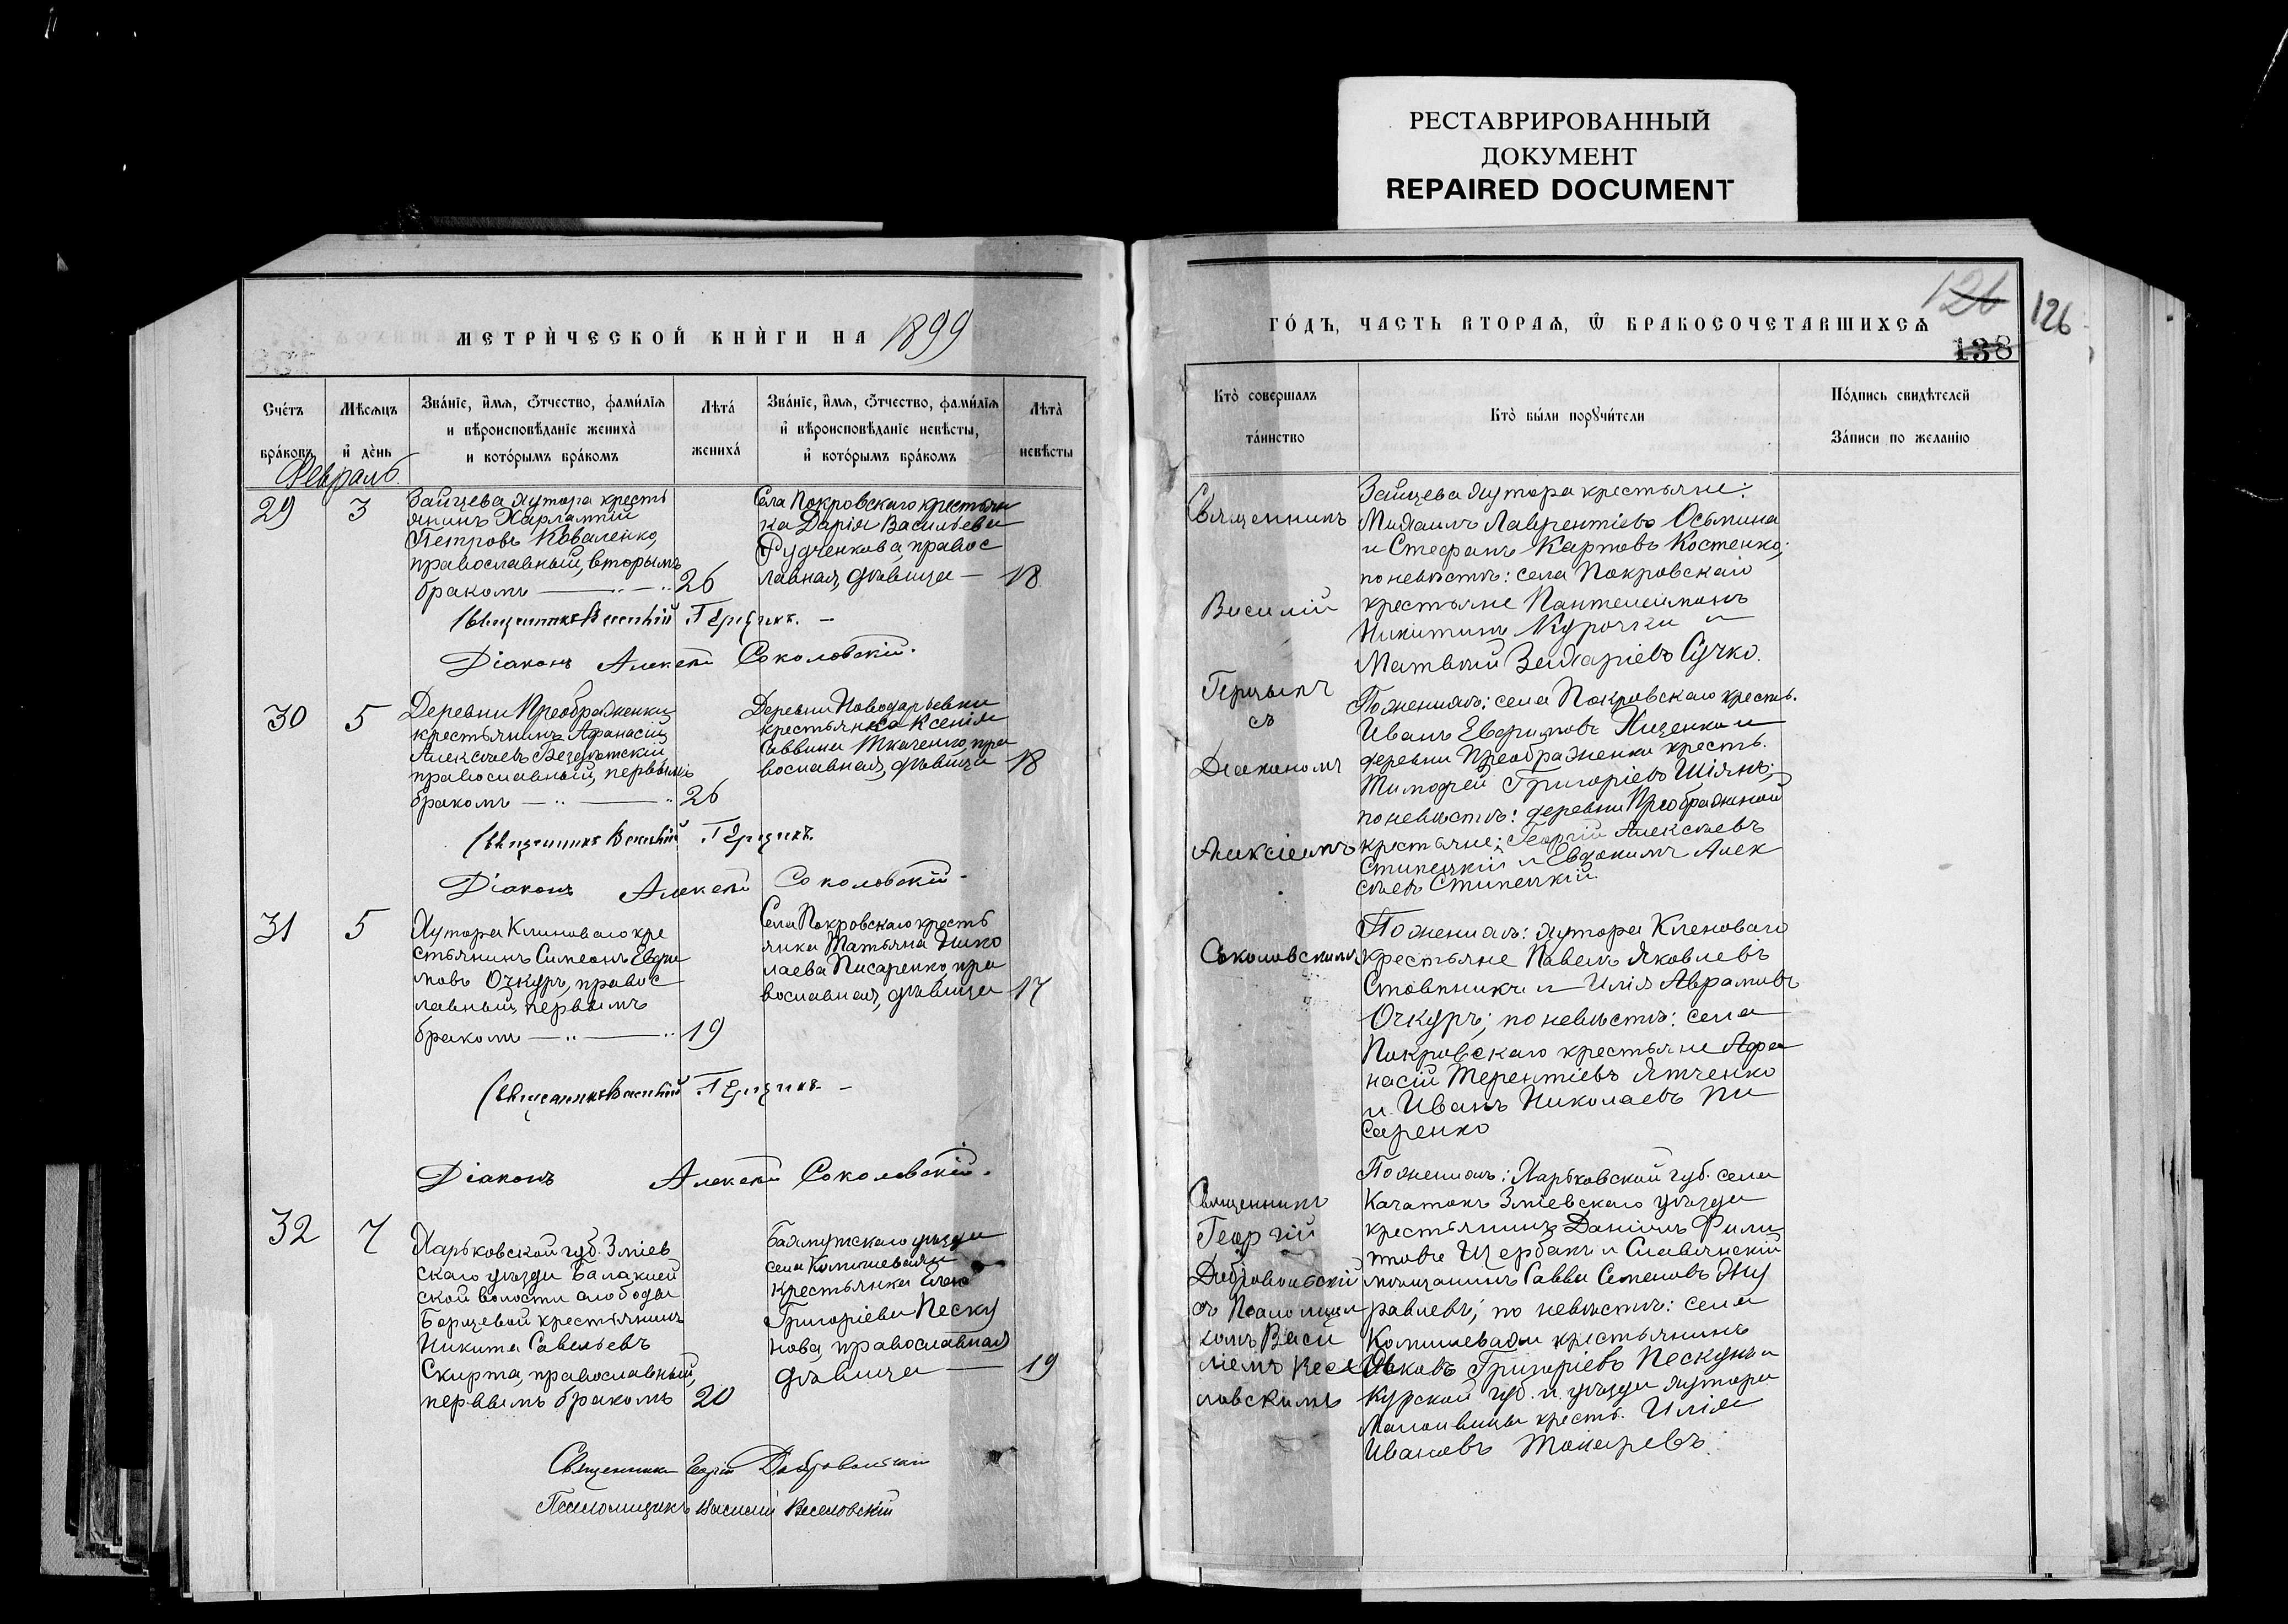 РЕСТАВРИРОВАННЫЙ
ДОКУМЕНТ
REPAIRED DOCUMENT
МЕТРИ́ЧЕСКОЙ КНИ́ГИ НА 1899
Сче́тъ бра́ковъ
Мѣсяцъ и де́нь
Зва́нїе, и́мя, ѻтчество, фами́лїя
и вѣроисповѣданїе жениха̀
и кото́рымъ бра́комъ
Лѣта̀ жениха́
Зва́нїе, и́мя, ѻтчество, фами́лїя
и вѣроисповѣданїе невѣсты,
и кото́рымъ бра́комъ
Лѣта̀ невѣсты
Февраль.
29
3
Зайцева хутора кресть
янинъ Харлампій
Петровъ Коваленко,
православный, вторымъ
бракомъ
26
Села Покровскаго крестьян
ка Дарія Васильева
Рудченкова, правос
лавная, дѣвица —
18
Священникъ Василій Герцыкъ. —
Діаконъ Алексѣй Соколовскій.
30
5
Деревни Преображенки
крестьянинъ Афанасій
Алексѣевъ
православный, первымъ
бракомъ
26
Деревни Новодарьевки
крестьянка Ксенія
Саввина Ткаченко, пра
вославная, дѣвица
18
Священникъ Василій Герцыкъ.
Діаконъ Алексѣй Соколовскій.
31
5
Хутора Клиноваго кре
стьянинъ Симеонъ Евфи
мовъ Очкуръ, правос
лавный, первымъ
бракомъ
19
Села Покровскаго кресть
янка Татьяна Нико
лаева Писаренко, пра
вославная, дѣвица
17
Священникъ Василій Герцыкъ. —
Діаконъ Алексѣй Соколовскій.
32
7
Харьковской губ. Зміев
скаго уѣзда Балаклей
ской волости слободы
Борщевой крестьянинъ
Никита Савельевъ
Скирта, православный,
первымъ бракомъ
20
Бахмутскаго уѣзда
села Комишевахи
крестьянка
Григорьева Песку
нова, православная
дѣвица
19
Священникъ Георгій Добровольскій
Псаломщикъ Василій Веселовскій
126
126
138
ГО́ДЪ, ЧАСТЬ ВТОРАЯ, Ѡ БРАКОСОЧЕТАВШИХСЯ
Кто̀ соверша́лъ та́инство
Кто̀ бы́ли порꙋчи́тели
По́дпись свидѣтелей
За́писи по желанїю
Священникъ
Василій
Герцыкъ
съ
Діакономъ
Алексіемъ
Соколовскимъ
Зайцева хутора крестьяне:
Михаилъ Лаврентіевъ Осьмина
и Стефанъ Карповъ Костенко;
по невѣстѣ: села Покровскаго
крестьяне Пантелеимонъ
Никитинъ Курочка и
Матвѣй Захаріевъ Сучко.
По женихѣ: села Покровскаго кресть.
Иванъ Евфимовъ и
деревни Преображенки кресть.
Тимофей Григоріевъ Шіянъ;
по невѣстѣ: деревни Преображеной
крестьяне: Георгій Алексѣевъ
Стипецкій и Евдокимъ Алек
сѣевъ Стипецкій.
По женихѣ: хутора Кленоваго
крестьяне Павелъ Яковлевъ
Стовпникъ и Илія Аврамовъ
Очкуръ; по невѣстѣ: села
Покровскаго крестьяне Афа
насій Терентіевъ Ятченко
и Иванъ Николаевъ Пи
саренко
Священникъ
Георгій
Добровольскій
съ Псаломщи
комъ Васи
ліемъ Весе
ловскимъ
По женихѣ: Харьковской губ. села
Зміевскаго уѣзда
крестьянинъ Даніилъ Фили
повъ Щербакъ и Славянскій
мѣщанинъ Савва Семеновъ Жу
равлевъ; по невѣстѣ: села
Комишевахи крестьянинъ
Яковъ Григоріевъ Пескунъ и
Курской губ. и уѣзда хутора
кресть. Илія
Ивановъ Токаревъ.